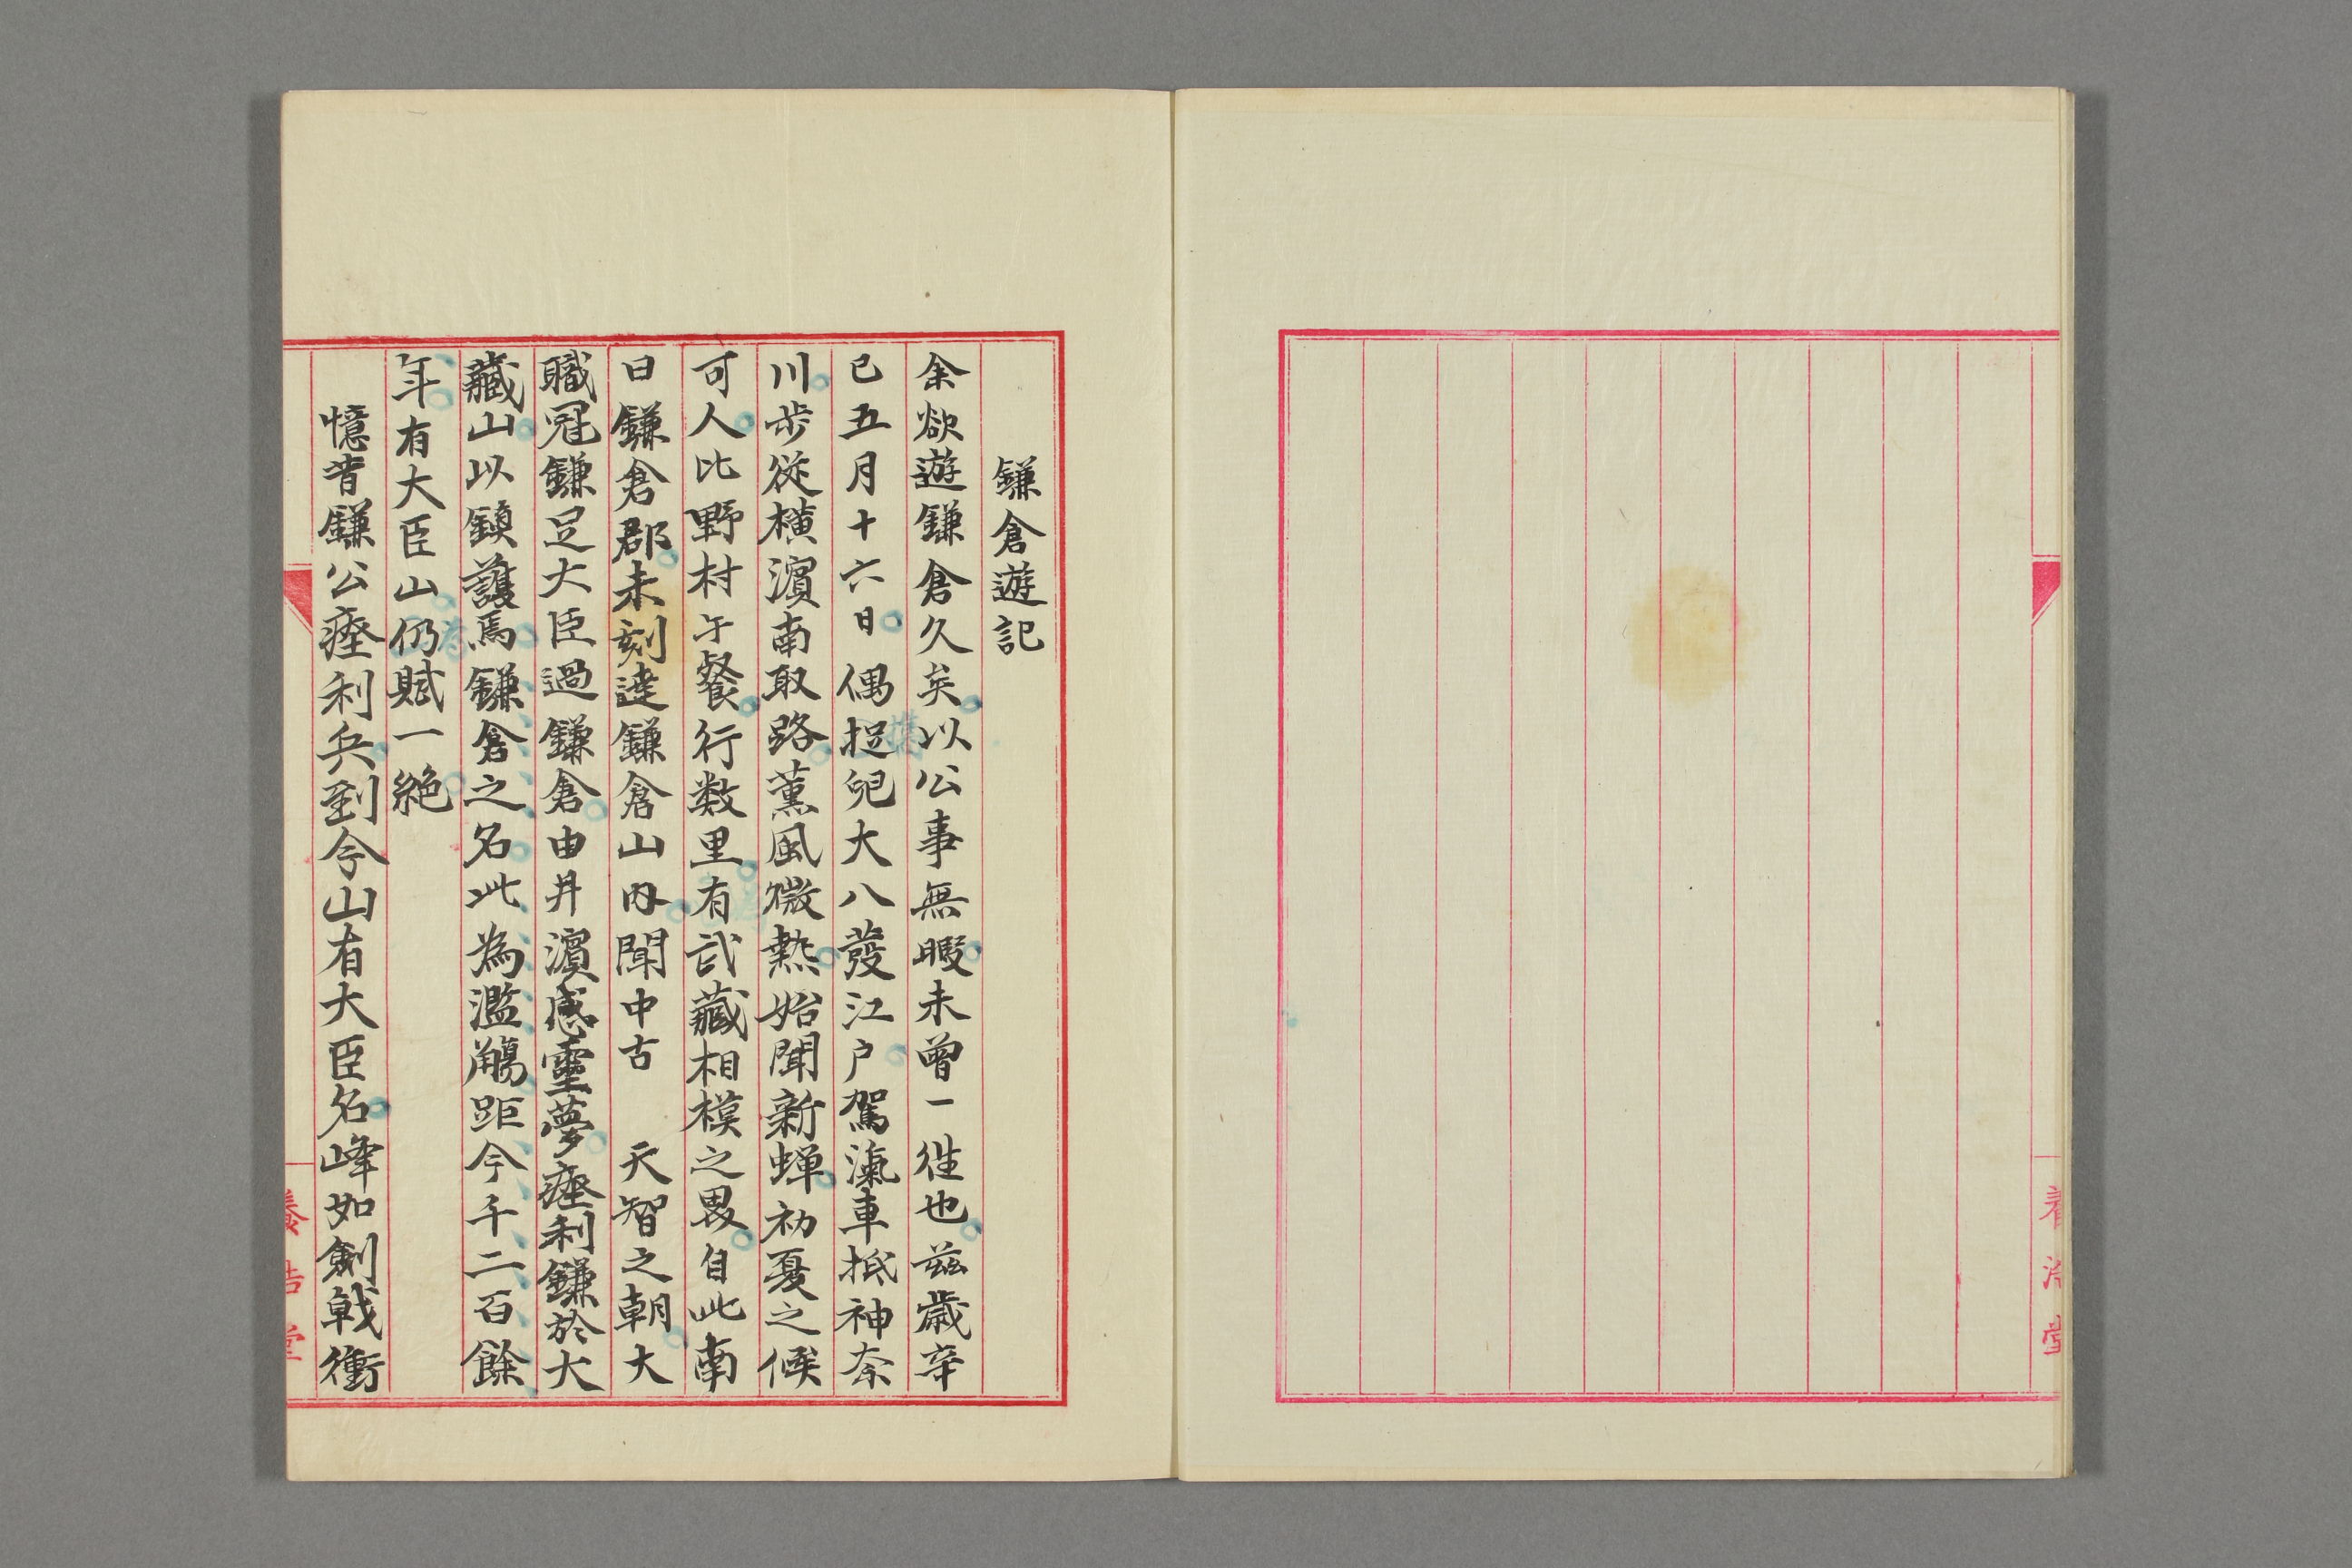 鎌倉遊記
余欲遊鎌倉久矣以公事無暇未曾一徃也茲歳辛
巳五月十六日偶捉兒大八發江户駕滊車抵神奈
川歩從横濵南取路薫風微熱始聞新蝉初夏之候
可人比野村午餐行数里有武藏相模之界自此南
曰鎌倉郡未刻達鎌倉山内聞中古　天智之朝大
職冠鎌足大臣過鎌倉由井濵感靈夢瘞利鎌於大
藏山以鎮護焉鎌倉之名此為濫觴距今千二百餘
年有大臣山仍賦一絶
憶昔鎌公瘞利兵到今山有大臣名峰如劍戟衝
養浩堂